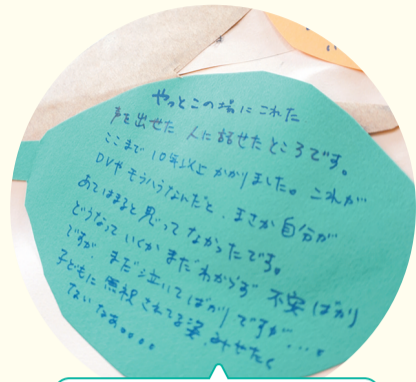 やっとこの場にこれた
声を出せた 人に話せたところです。
ここまで 10年以上 かかりました。これが
DVや モラハラなんだと、まさか自分が
あてはまると思ってなかったです。
どうなっていくか まだ わからず 不安ばかり
ですが、まだ 泣いてばかりですが・・・
子どもに 無視されてる姿、みせたく
ないなあ。。。。